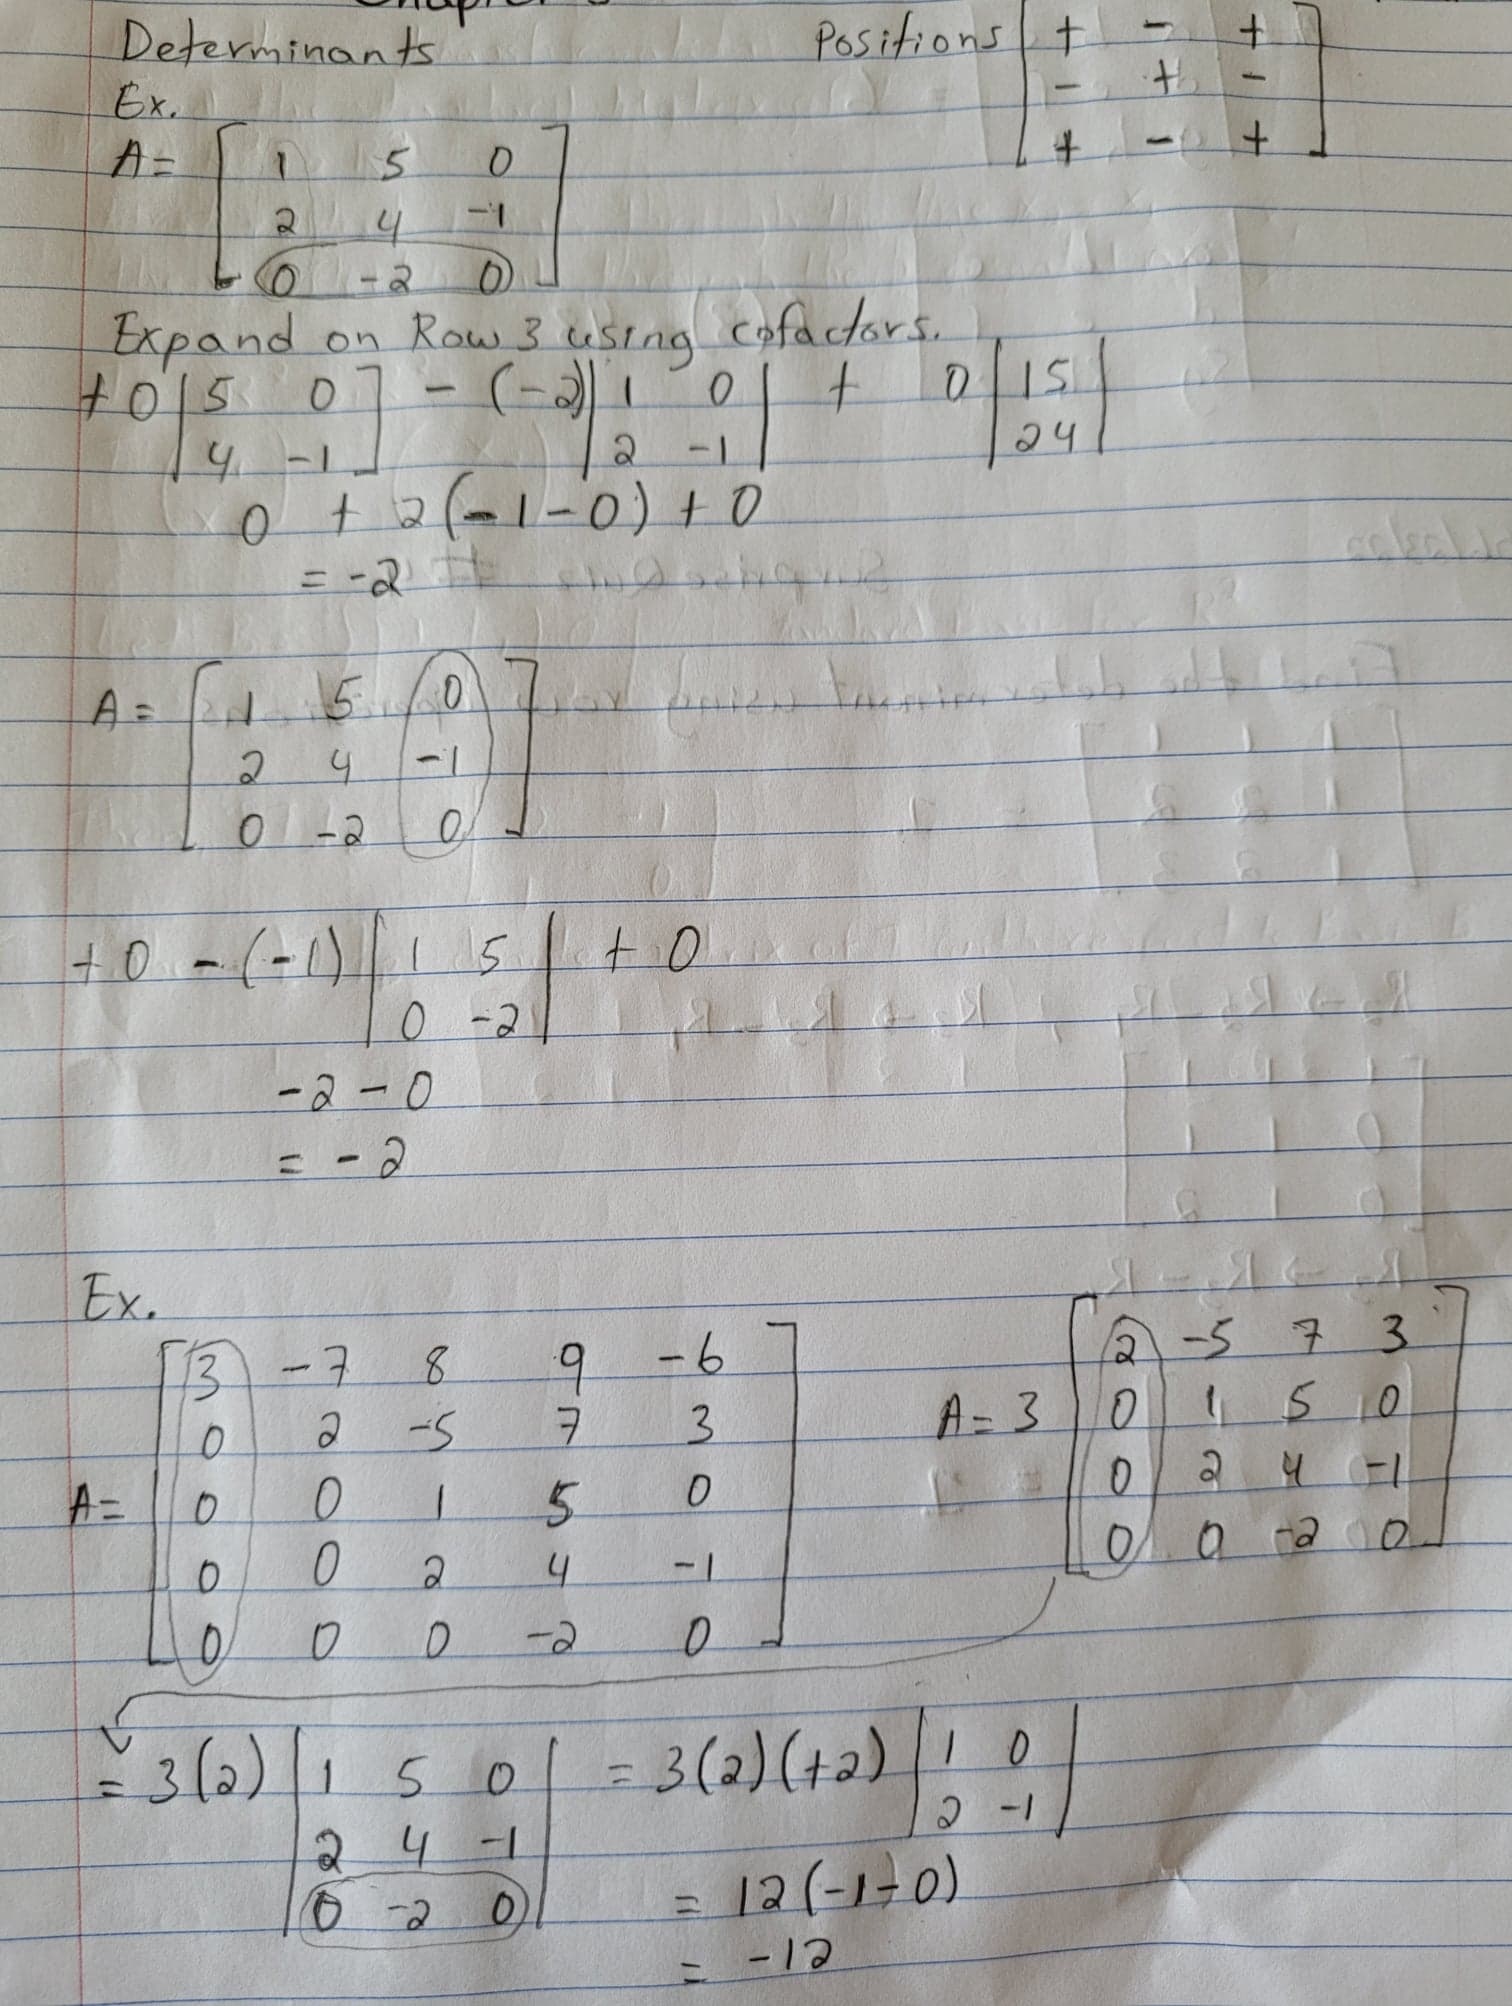 Determinants
Positions [ + - +
- + -
+ - + ]
Ex.
A = [ 1 5 0
2 4 -1
0 -2 0 ]
Expand on Row 3 using cofactors.
+0 | 5 0 ] - (-2) | 1 0 | + 0 | 1 5 |
| 4 -1 ] | 2 -1 | | 2 4 |
0 + 2(-1-0) + 0
= -2
A = [ 1 5 0
2 4 -1
0 -2 0 ]
+0 - (-1) | 1 5 | + 0
| 0 -2 |
-2 - 0
= -2
Ex.
A = [ 3 -7 8 9 -6
0 2 -5 7 3
0 0 1 5 0
0 0 2 4 -1
0 0 0 -2 0 ]
A = 3 [ 2 -5 7 3
0 1 5 0
0 2 4 -1
0 0 -2 0 ]
= 3(2) | 1 5 0 | = 3(2)(+2) | 1 0 |
| 2 4 -1 | | 2 -1 |
| 0 -2 0 | = 12(-1-0)
= -12